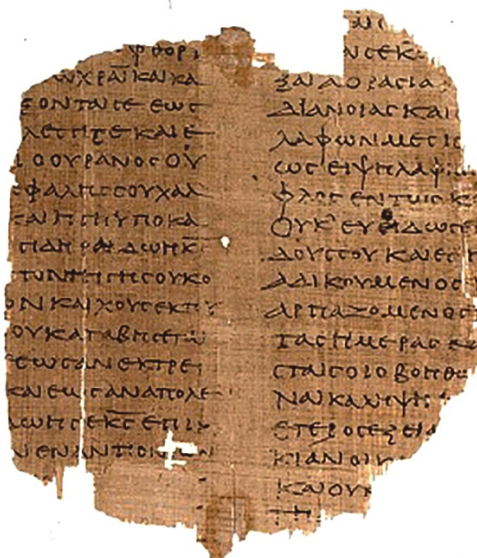 φθορι
ωχραι και κα
ξονται σε εως
λεσητε και ε
ι ο ουρανος ου
εφαλης σου χαλ
σαι η γη υποκα
σιδηρα δωη κ
τον τη γη σου κο
ον και χους εκ τ
ου καταβησετα
εως αν εκτρει
και εως αν απολε
δωη σε κ̅ς̅ επικ
εναντιον ων
αι σε κ
ξαι αορασια
διανοιας και
λαφων μεσι
ως ει ψηλαφη
φλος εν τωι σκ
ουκ ευοδωσε
δους σου και εσ
αδικουμενος
αρπαζομενος
τας ημερας κ
σται σοι ο βοηθω
ναικα ληψη
ετερος εξει
κιαν οι
και ουκ